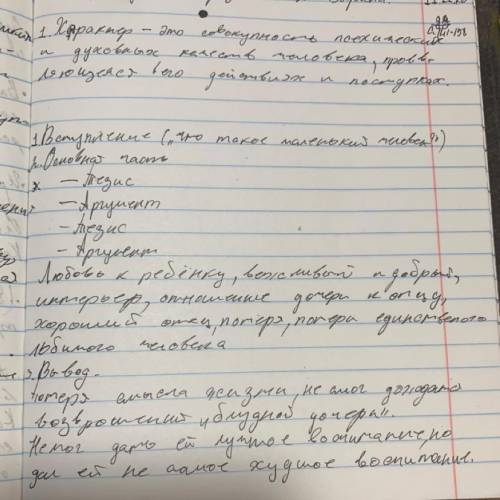 1. Характер – это совокупность психических
и духовных качеств человека, прояв-
ляющихся в его действиях и поступках.
1. Вступление („что такое маленький человек?")
2. Основная часть
– Тезис
– Аргумент
– Тезис
– Аргумент
Любовь к ребёнку, вежливый и добрый,
интерьер, отношение дочери к отцу,
хороший отец, потеря, потеря единственого
любимого человека
3. Вывод.
потеря смысла жизни, не смог дождаться
возврощений „блудной дочери".
Немог дать ей лучшое воспитание, но
дал ей не самое худшое воспитание.